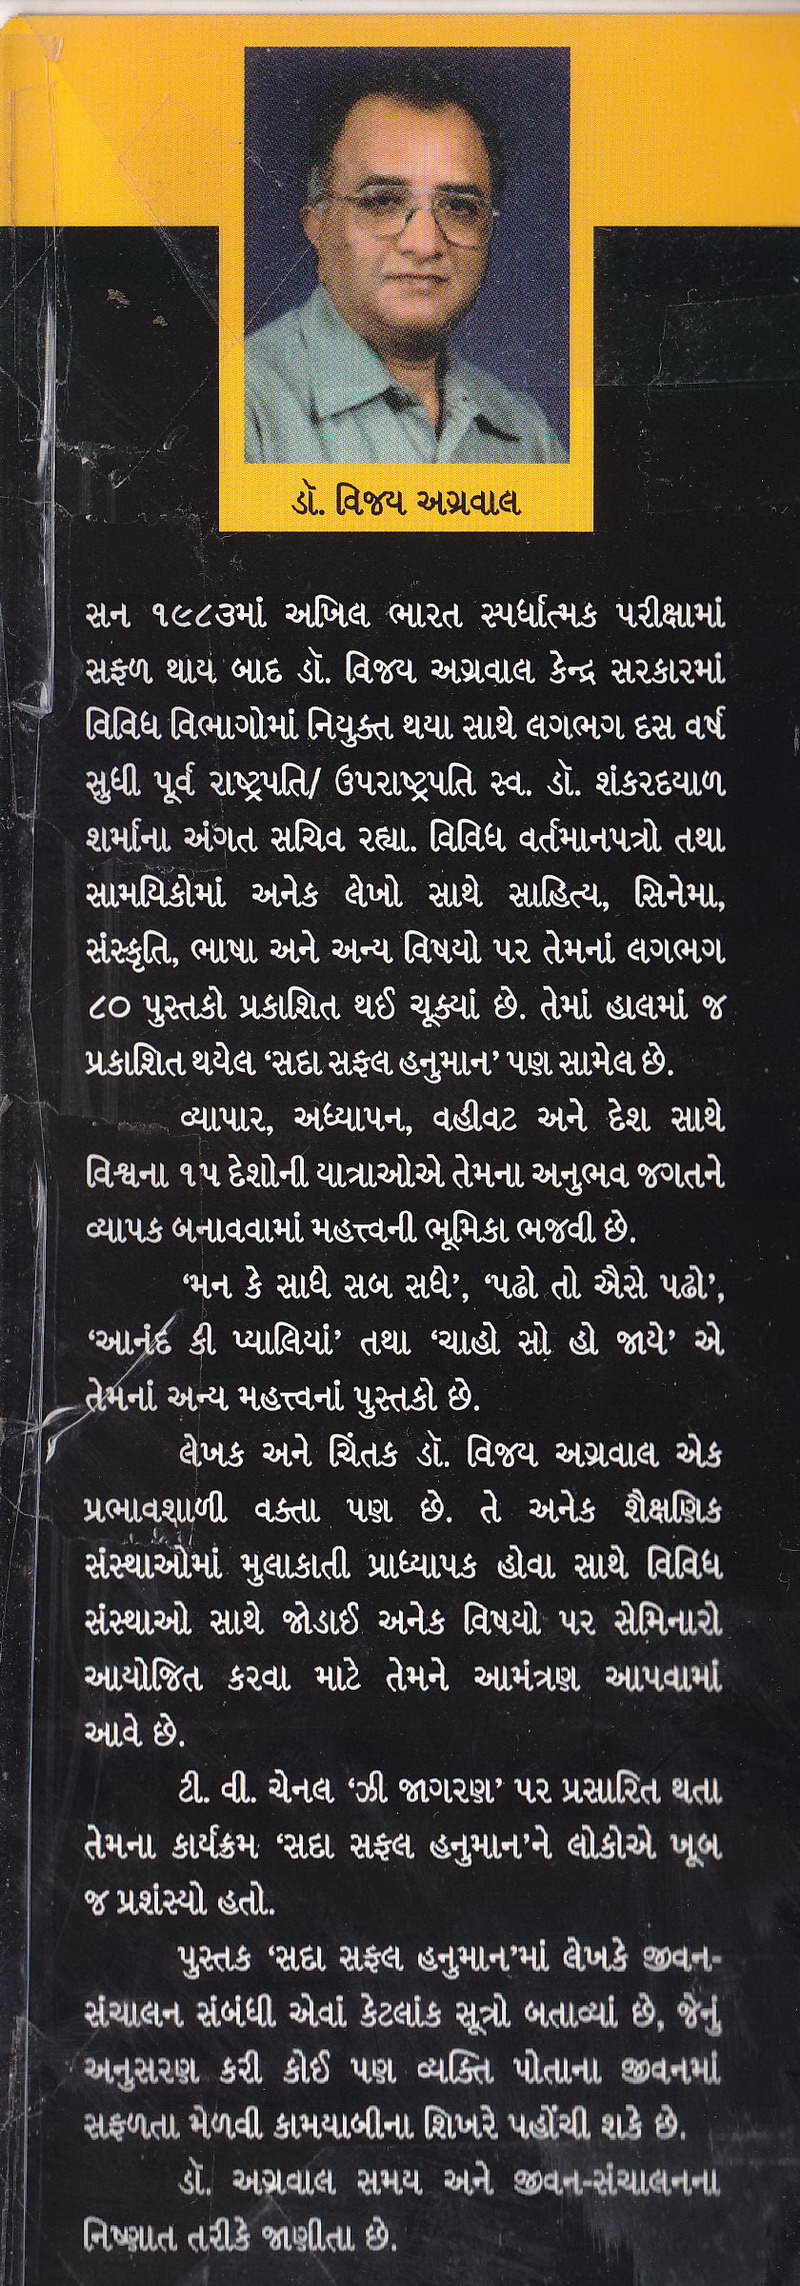 ડૉ. વિજય અગ્રવાલ
સન ૧૯૮૩માં અખિલ ભારત સ્પર્ધાત્મક પરીક્ષામાં
સફળ થાય બાદ ડૉ. વિજય અગ્રવાલ કેન્દ્ર સરકારમાં
વિવિધ વિભાગોમાં નિયુક્ત થયા સાથે લગભગ દસ વર્ષ
સુધી પૂર્વ રાષ્ટ્રપતિ/ ઉપરાષ્ટ્રપતિ સ્વ. ડૉ. શંકરદયાળ
શર્માના અંગત સચિવ રહ્યા. વિવિધ વર્તમાનપત્રો તથા
સામયિકોમાં અનેક લેખો સાથે સાહિત્ય, સિનેમા,
સંસ્કૃતિ, ભાષા અને અન્ય વિષયો પર તેમનાં લગભગ
૮૦ પુસ્તકો પ્રકાશિત થઈ ચૂક્યાં છે. તેમાં હાલમાં જ
પ્રકાશિત થયેલ ‘સદા સફલ હનુમાન’ પણ સામેલ છે.
વ્યાપાર, અધ્યાપન, વહીવટ અને દેશ સાથે
વિશ્વના ૧૫ દેશોની યાત્રાઓએ તેમના અનુભવ જગતને
વ્યાપક બનાવવામાં મહત્ત્વની ભૂમિકા ભજવી છે.
‘મન કે સાધે સબ સધે’, ‘પઢો તો ઐસે પઢો’,
‘આનંદ કી પ્યાલિયાં’ તથા ‘ચાહો સો હો જાયે’ એ
તેમનાં અન્ય મહત્ત્વનાં પુસ્તકો છે.
લેખક અને ચિંતક ડૉ. વિજય અગ્રવાલ એક
પ્રભાવશાળી વક્તા પણ છે. તે અનેક શૈક્ષણિક
સંસ્થાઓમાં મુલાકાતી પ્રાધ્યાપક હોવા સાથે વિવિધ
સંસ્થાઓ સાથે જોડાઈ અનેક વિષયો પર સેમિનારો
આયોજિત કરવા માટે તેમને આમંત્રણ આપવામાં
આવે છે.
ટી. વી. ચેનલ ‘ઝી જાગરણ’ પર પ્રસારિત થતા
તેમના કાર્યક્રમ ‘સદા સફલ હનુમાન’ને લોકોએ ખૂબ
જ પ્રશંસ્યો હતો.
પુસ્તક ‘સદા સફલ હનુમાન’માં લેખકે જીવન-
સંચાલન સંબંધી એવાં કેટલાંક સૂત્રો બતાવ્યાં છે, જેનું
અનુસરણ કરી કોઈ પણ વ્યક્તિ પોતાના જીવનમાં
સફળતા મેળવી કામયાબીના શિખરે પહોંચી શકે છે.
ડૉ. અગ્રવાલ સમય અને જીવન-સંચાલનના
નિષ્ણાત તરીકે જાણીતા છે.